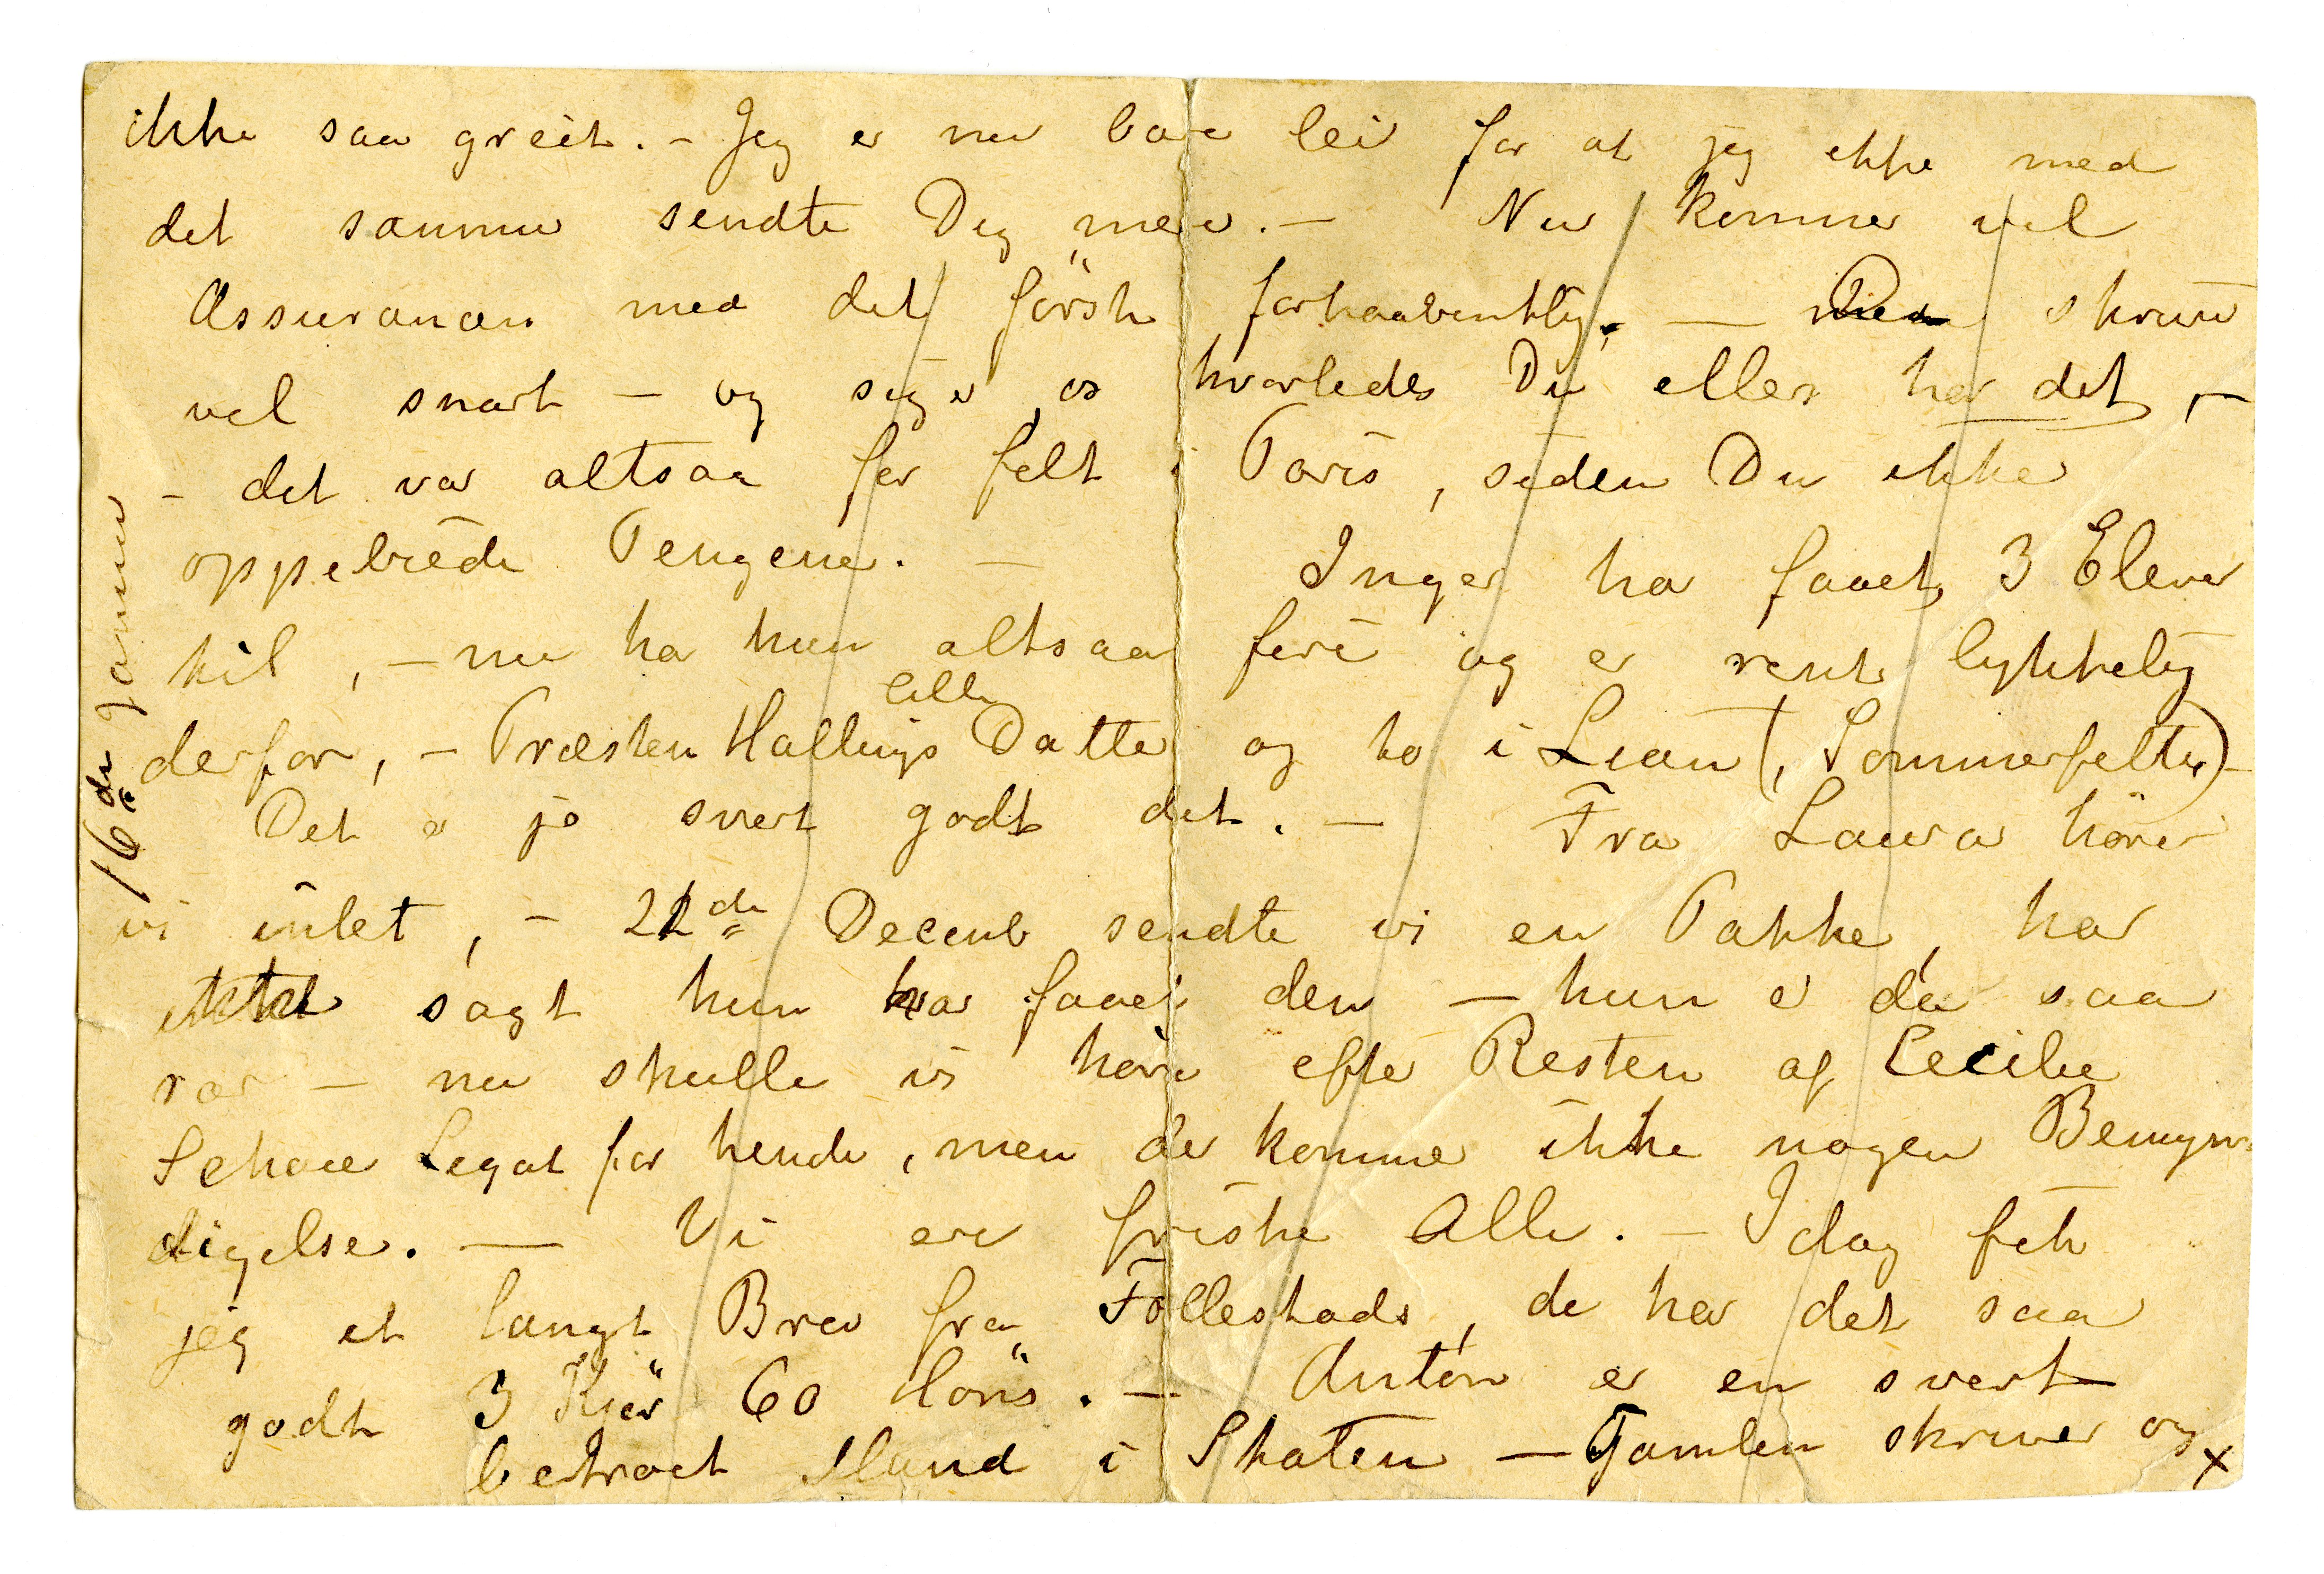 ikke saa greit. - Jeg er nu bare lei for at jeg ikke med
det samme sendte Dig mere. - Nu kommer vel
Assurancen med det första forhaabentlig. — Du skriver
vel snart - og siger os hvorledes Du ellers har det, -
- det var altsaa for felt i Paris, siden Du ikke
oppebiede Pengene. - Inger har faaet 3 Elever
til, - nu har hun altsaa fire og er rent lykkelig
derfor, - Præsten Hallings lille Datter og to i Lian (, Sommerfelter) -
Det er jo svert godt det. - Fra Laura hörer
vi intet, - 22de Decemb sendte vi en Pakke, har
ikke sagt hun har faaet den - hun er da saa
rar - nu skulle vi höre efter Resten af Cecilie
Schous Legat for hende, men der kommer ikke nogen Bemyn-
digelse. — Vi ere friske Alle. - Idag fik
jeg et langt Brev fraFöllestads, de har det saa
godt 3 Kjör 60 Höns. - Anton er en svert
betroet Mand i Staten — Gamlen skriver og x
16de Januar